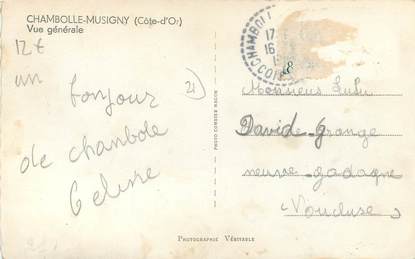 CHAMBOLLE-MUSIGNY (Côte-d'Or)
Vue générale
12€
21
un bonjour
de chambole
Celine
PHOTO COMBIER MACON
17
16
8
Monsieur Lulu
David-Grange
neuve-gadagne
(Vaucluse)
PHOTOGRAPHIE VÉRITABLE